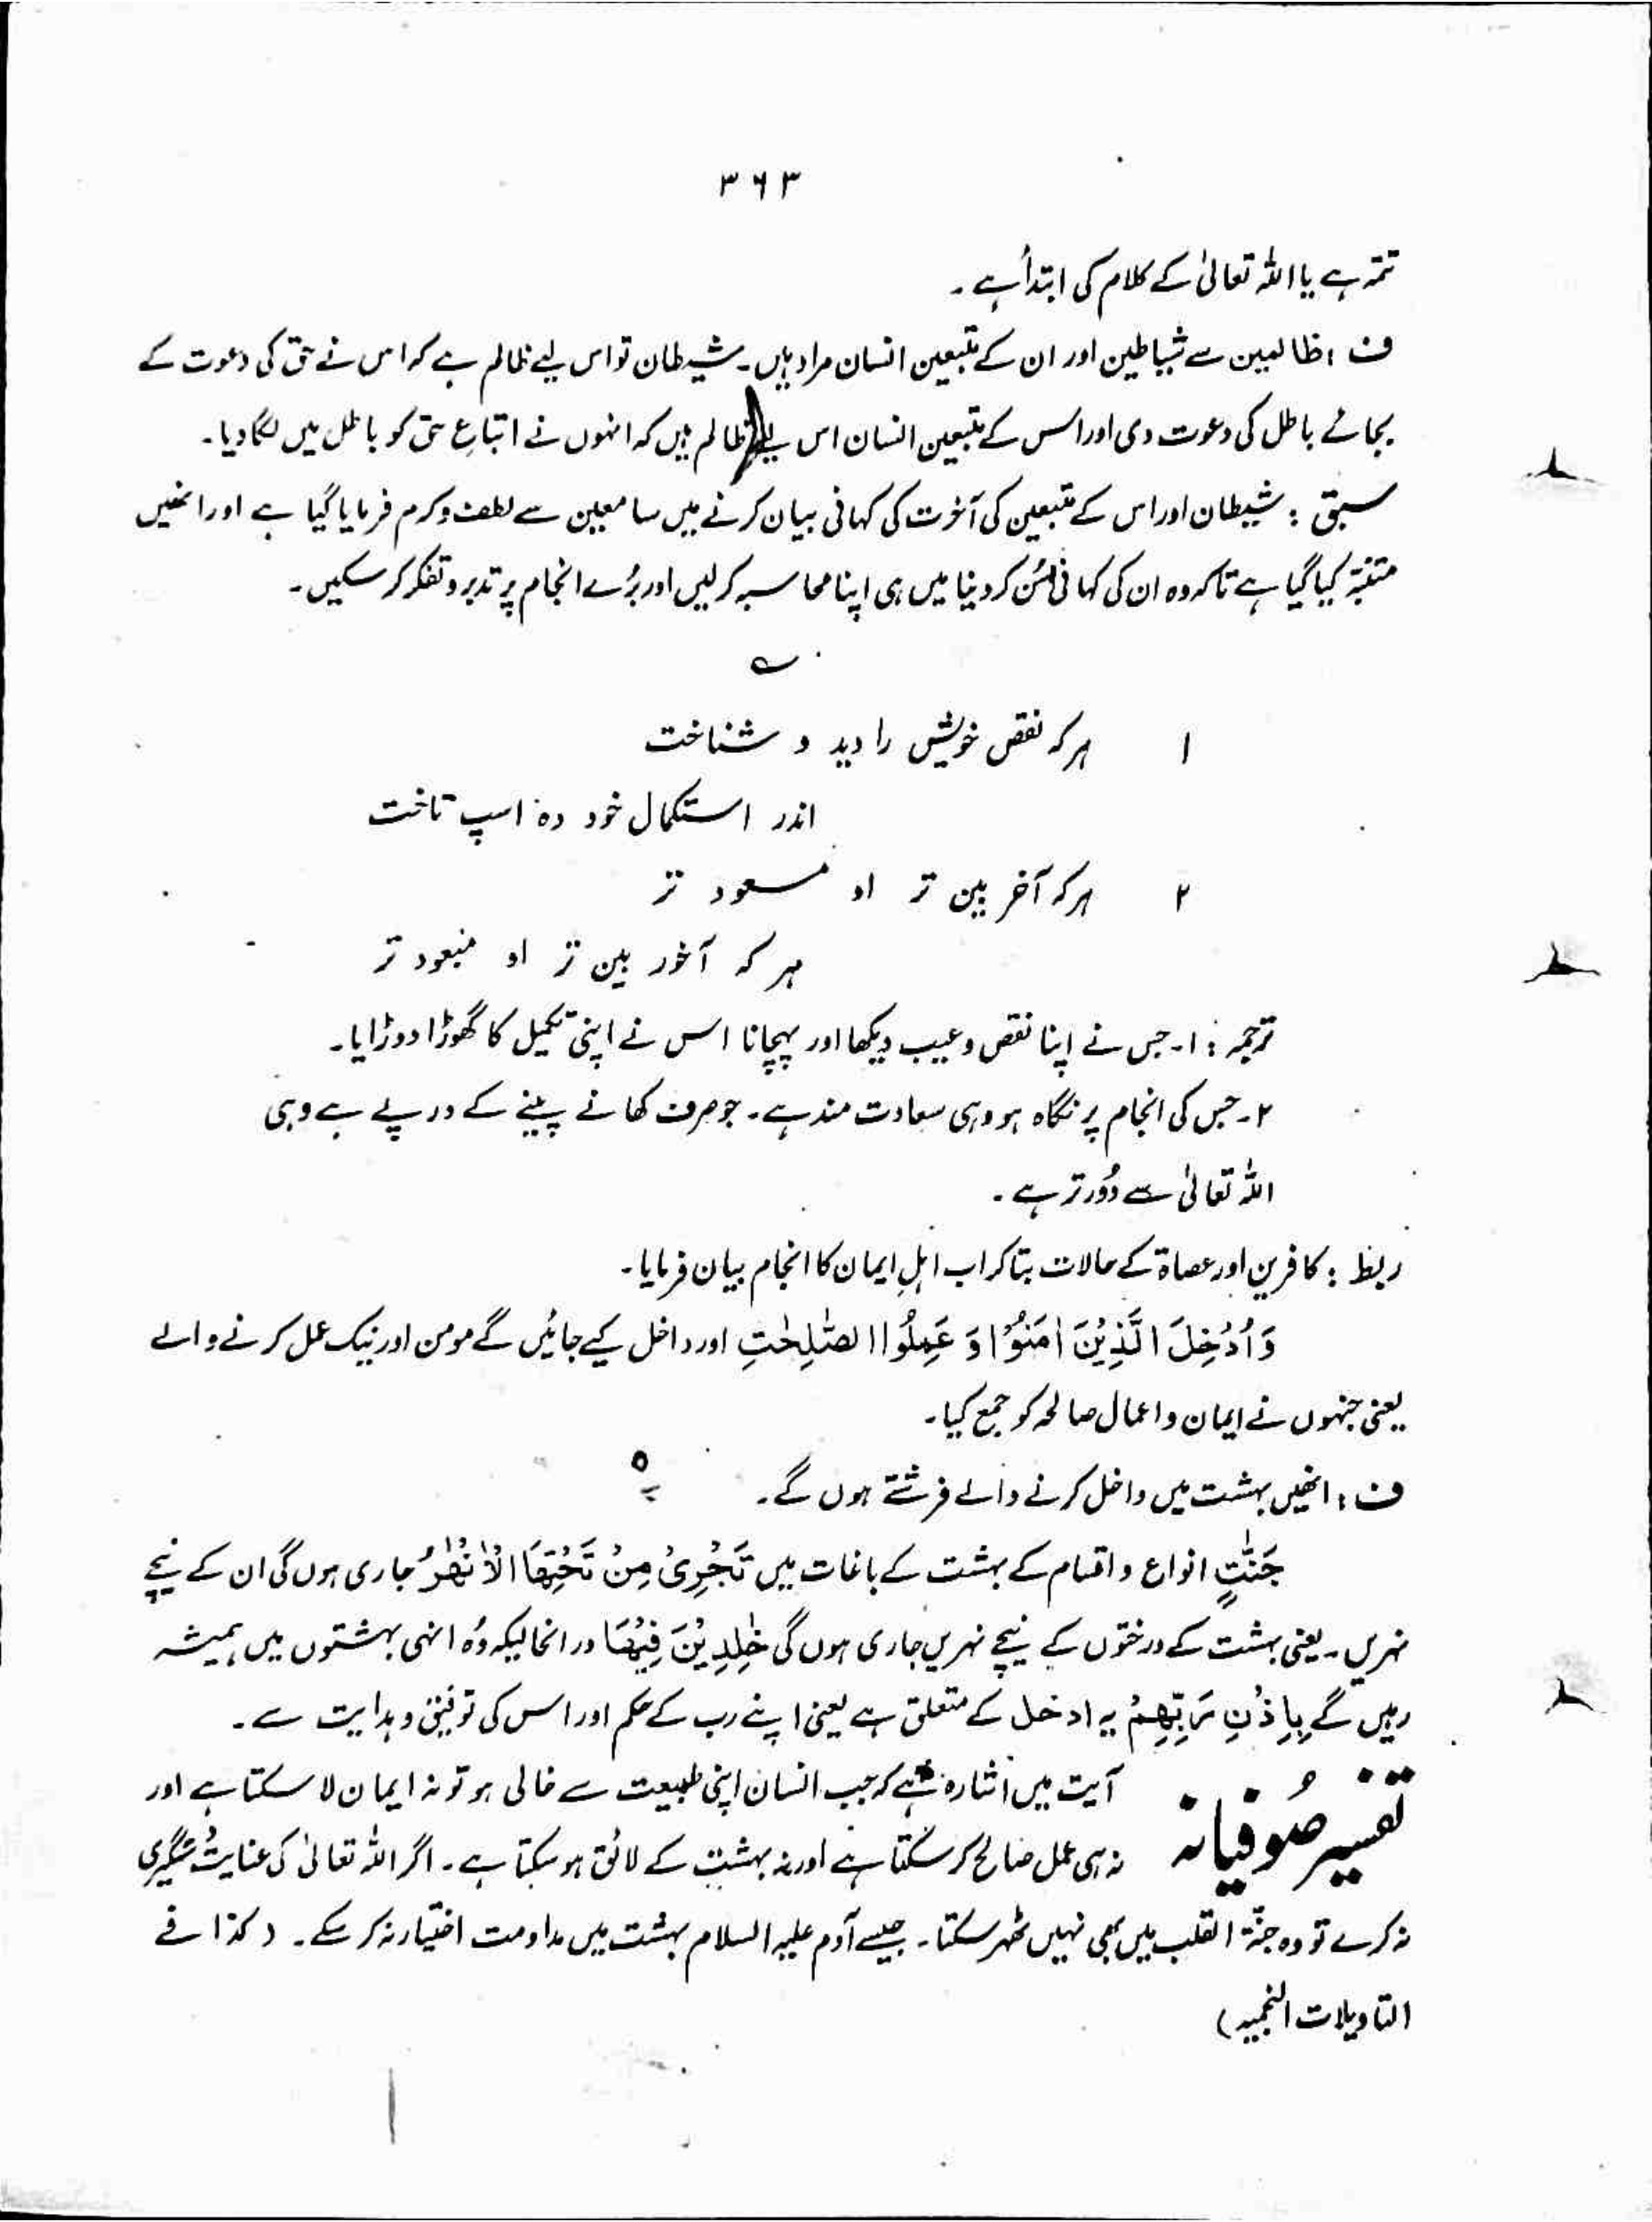 ۳۶۳
تتمہ ہے یا اللہ تعالیٰ کے کلام کی ابتداً ہے۔
ف: ظالمین سے شیاطین اور ان کے متبعین انسان مراد ہیں۔ شیطان تو اس لیے ظالم ہے کہ اس نے حق کی دعوت کے
بجائے باطل کی دعوت دی اور اس کے متبعین انسان اس لیے ظالم ہیں کہ انہوں نے اتباعِ حق کو باطل میں لگا دیا۔
سبق: شیطان اور اس کے متبعین کی آخرت کی کہانی بیان کرنے میں سامعین سے لطف و کرم فرمایا گیا ہے اور انھیں
متنبّہ کیا گیا ہے تاکہ وہ ان کی کہانی سُن کر دنیا میں ہی اپنا محاسبہ کر لیں اور بُرے انجام پر تدبر و تفکر کر سکیں۔
؎
۱ ہر کہ نقص خویش را دید و شناخت
اندر استکمال خود دہ اسپ تاخت
۲ ہر کہ آخر بین تر او مسعود تر
ہر کہ آخور بین تر او مبعود تر
ترجمہ: ۱۔ جس نے اپنا نقص و عیب دیکھا اور پہچانا اس نے اپنی تکمیل کا گھوڑا دوڑایا۔
۲۔ جس کی انجام پر نگاہ ہو وہی سعادت مند ہے۔ جو صرف کھانے پینے کے درپے ہے وہی
اللہ تعالیٰ سے دُور تر ہے۔
ربط: کافرین اور عصاۃ کے حالات بتا کر اب اہلِ ایمان کا انجام بیان فرمایا۔
وَاُدْخِلَ الَّذِیْنَ اٰمَنُوْا وَ عَمِلُوا الصّٰلِحٰتِ اور داخل کیے جائیں گے مومن اور نیک عمل کرنے والے
یعنی جنہوں نے ایمان و اعمال صالحہ کو جمع کیا۔
ف: انھیں بہشت میں داخل کرنے والے فرشتے ہوں گے۔
جَنّٰتٍ انواع و اقسام کے بہشت کے باغات میں تَجْرِیْ مِنْ تَحْتِهَا الْاَنْهٰرُ جاری ہوں گی ان کے نیچے
نہریں۔ یعنی بہشت کے درختوں کے نیچے نہریں جاری ہوں گی خٰلِدِیْنَ فِیْهَا درانحالیکہ وُہ انہی بہشتوں میں ہمیشہ
رہیں گے بِاِذْنِ رَبِّهِمْ یہ ادخل کے متعلق ہے یعنی اپنے رب کے حکم اور اس کی توفیق و ہدایت سے۔
تفسیر صُوفیانہ آیت میں اشارہ ہے کہ جب انسان اپنی طبیعت سے خالی ہو تو نہ ایمان لا سکتا ہے اور
نہ ہی عمل صالح کر سکتا ہے اور نہ بہشت کے لائق ہو سکتا ہے۔ اگر اللہ تعالیٰ کی عنایت دستگیری
نہ کرے تو وہ جنّۃ القلب میں بھی نہیں ٹھہر سکتا۔ جیسے آدم علیہ السلام بہشت میں مداومت اختیار نہ کر سکے۔ (کذا فے
التاویلات النجمیہ)